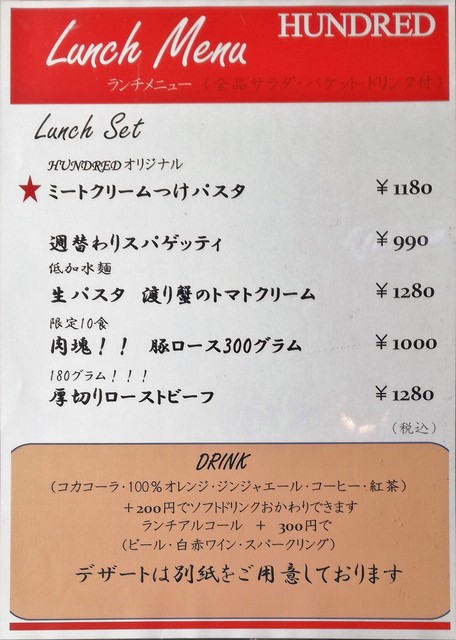 HUNDRED
Lunch Menu
ランチメニュー（全品サラダ・バケット・ドリンク付）
Lunch Set
HUNDREDオリジナル
★ミートクリームつけパスタ ￥1180
週替わりスパゲッティ ￥990
低加水麺
生パスタ 渡り蟹のトマトクリーム ￥1280
限定10食
肉塊！！ 豚ロース300グラム ￥1000
180グラム！！！
厚切りローストビーフ ￥1280
（税込）
DRINK
（コカコーラ・100％オレンジ・ジンジャエール・コーヒー・紅茶）
＋200円でソフトドリンクおかわりできます
ランチアルコール ＋ 300円で
（ビール・白赤ワイン・スパークリング）
デザートは別紙をご用意しております